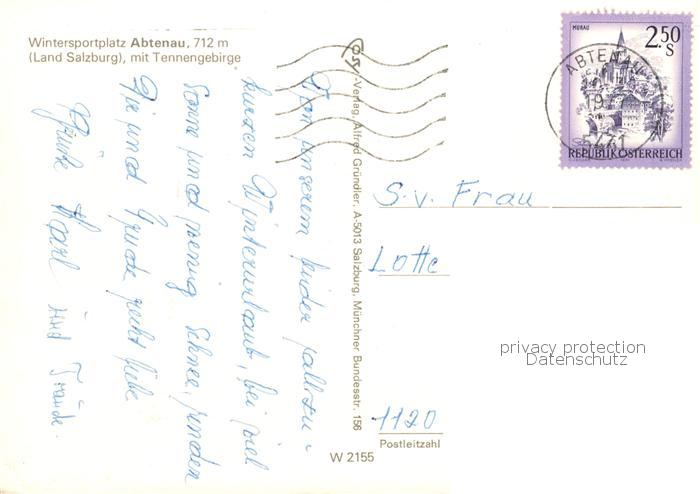 Wintersportplatz Abtenau, 712 m
(Land Salzburg), mit Tennengebirge
Von unserem leider allzu-
kurzen Winterurlaub, bei viel
Sonne und wenig Schnee, senden
Dir und recht liebe
Grüße Karl und Traude.
-Verlag, Alfred Gründler, A-5013 Salzburg, Münchner Bundesstr. 156
W 2155
MURAU
2.50
S
REPUBLIK ÖSTERREICH
ABTENAU
5441
S.v. Frau
Lotte
privacy protection
Datenschutz
1120
Postleitzahl